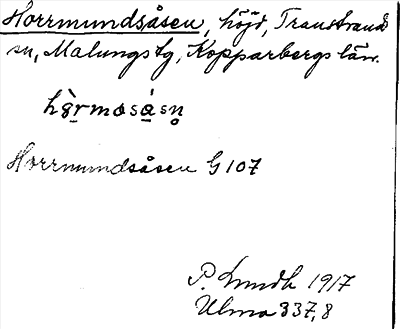 Horrmundsåsen, höjd, Transtrands
sn, Malungs tg, Kopparbergs län.
hòrmosásn̥
Horrmundsåsen G 107
P. Lundh 1917
Ulma 337,8